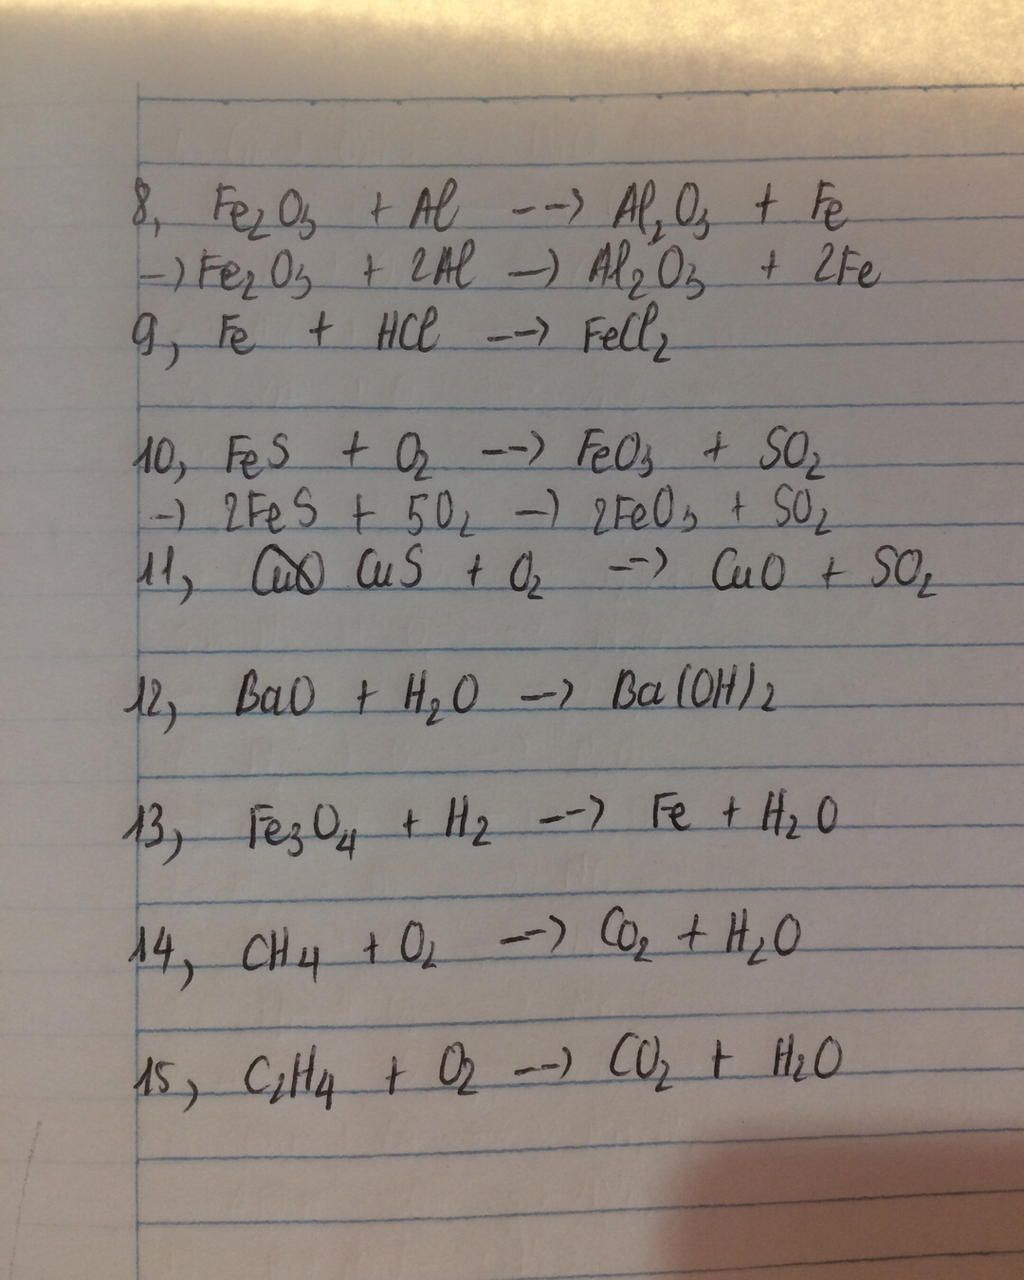 8, Fe₂O₃ + Al --> Al₂O₃ + Fe
-> Fe₂O₃ + 2Al -> Al₂O₃ + 2Fe
9, Fe + HCl --> FeCl₂
10, FeS + O₂ --> FeO₃ + SO₂
-> 2FeS + 5O₂ -> 2FeO₃ + SO₂
11, CuO CuS + O₂ --> CuO + SO₂
12, BaO + H₂O --> Ba(OH)₂
13, Fe₃O₄ + H₂ --> Fe + H₂O
14, CH₄ + O₂ --> CO₂ + H₂O
15, C₂H₄ + O₂ --> CO₂ + H₂O